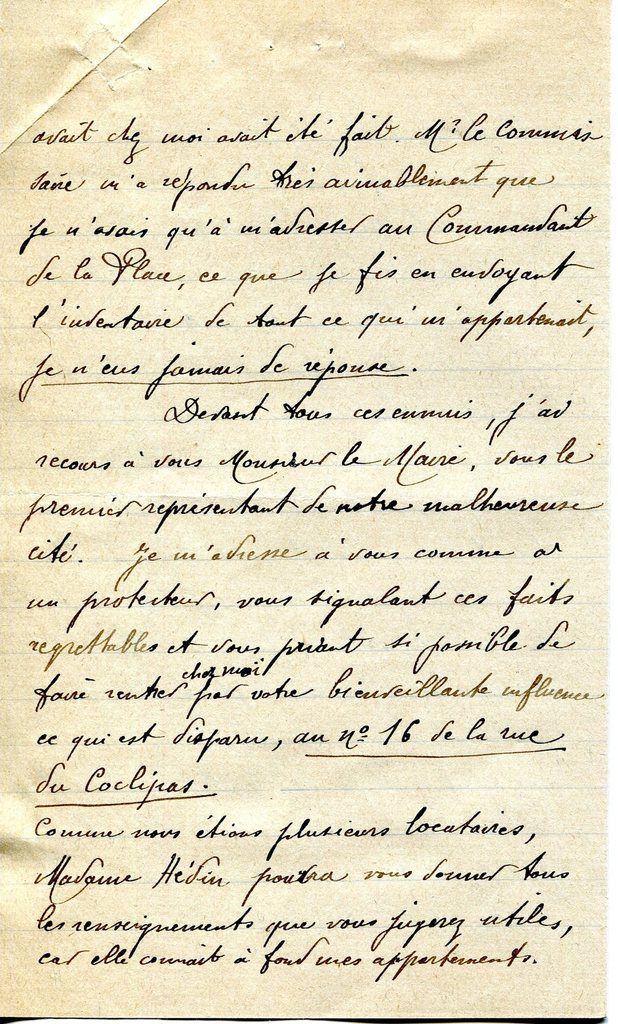 avait chez moi avait été fait. Mr le Commis
saire m'a répondu très aimablement que
je n'avais qu'à m'adresser au Commandant
de la Place, ce que je fis en envoyant
l'inventaire de tout ce qui m'appartenait,
je n'eus jamais de réponse.
Devant tous ces ennuis, j'ai
recours à vous Monsieur le Maire, vous le
premier représentant de notre malheureuse
cité. Je m'adresse à vous comme à
un protecteur, vous signalant ces faits
regrettables et vous priant si possible de
faire rentrer chez moi par votre bienveillante influence
ce qui est disparu, au no 16 de la rue
du Coclipas.
Comme nous étions plusieurs locataires,
Madame Hédin pourra vous donner tous
les renseignements que vous jugerez utiles,
car elle connait à fond mes appartements.